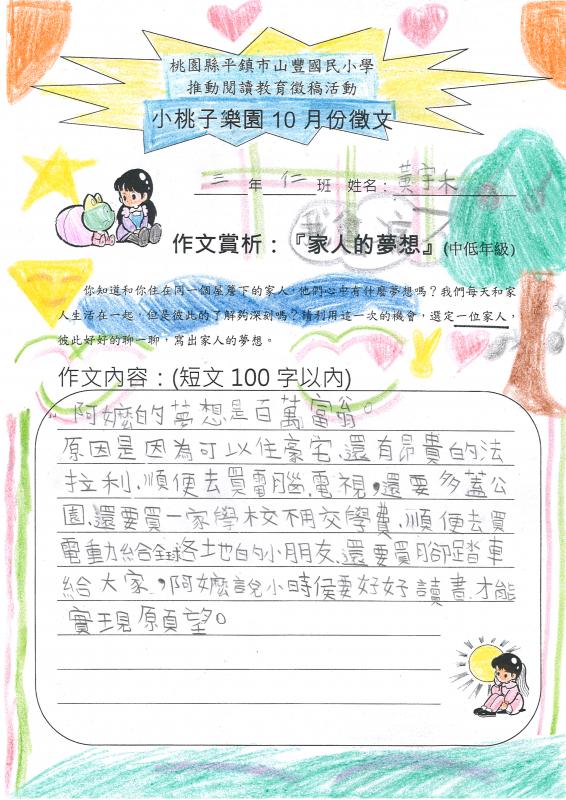 桃園縣平鎮市山豐國民小學
推動閱讀教育徵稿活動
小桃子樂園 10 月份徵文
三 年 仁 班 姓名: 黃宇禾
作文賞析:『家人的夢想』(中低年級)
你知道和你住在同一個屋簷下的家人,他們心中有什麼夢想嗎?我們每天和家
人生活在一起,但是彼此的了解夠深刻嗎?請利用這一次的機會,選定一位家人,
彼此好好的聊一聊,寫出家人的夢想。
作文內容:(短文 100 字以內)
阿嬤的夢想是百萬富翁。
原因是因為可以住豪宅、還有昂貴的法
拉利、順便去買電腦、電視,還要多蓋公
園、還要買一家學校不用交學費、順便去買
電動給全球各土地白的小朋友、還要買腳踏車
給大家,阿嬤說小時侯要好好讀書、才能
實現願望。